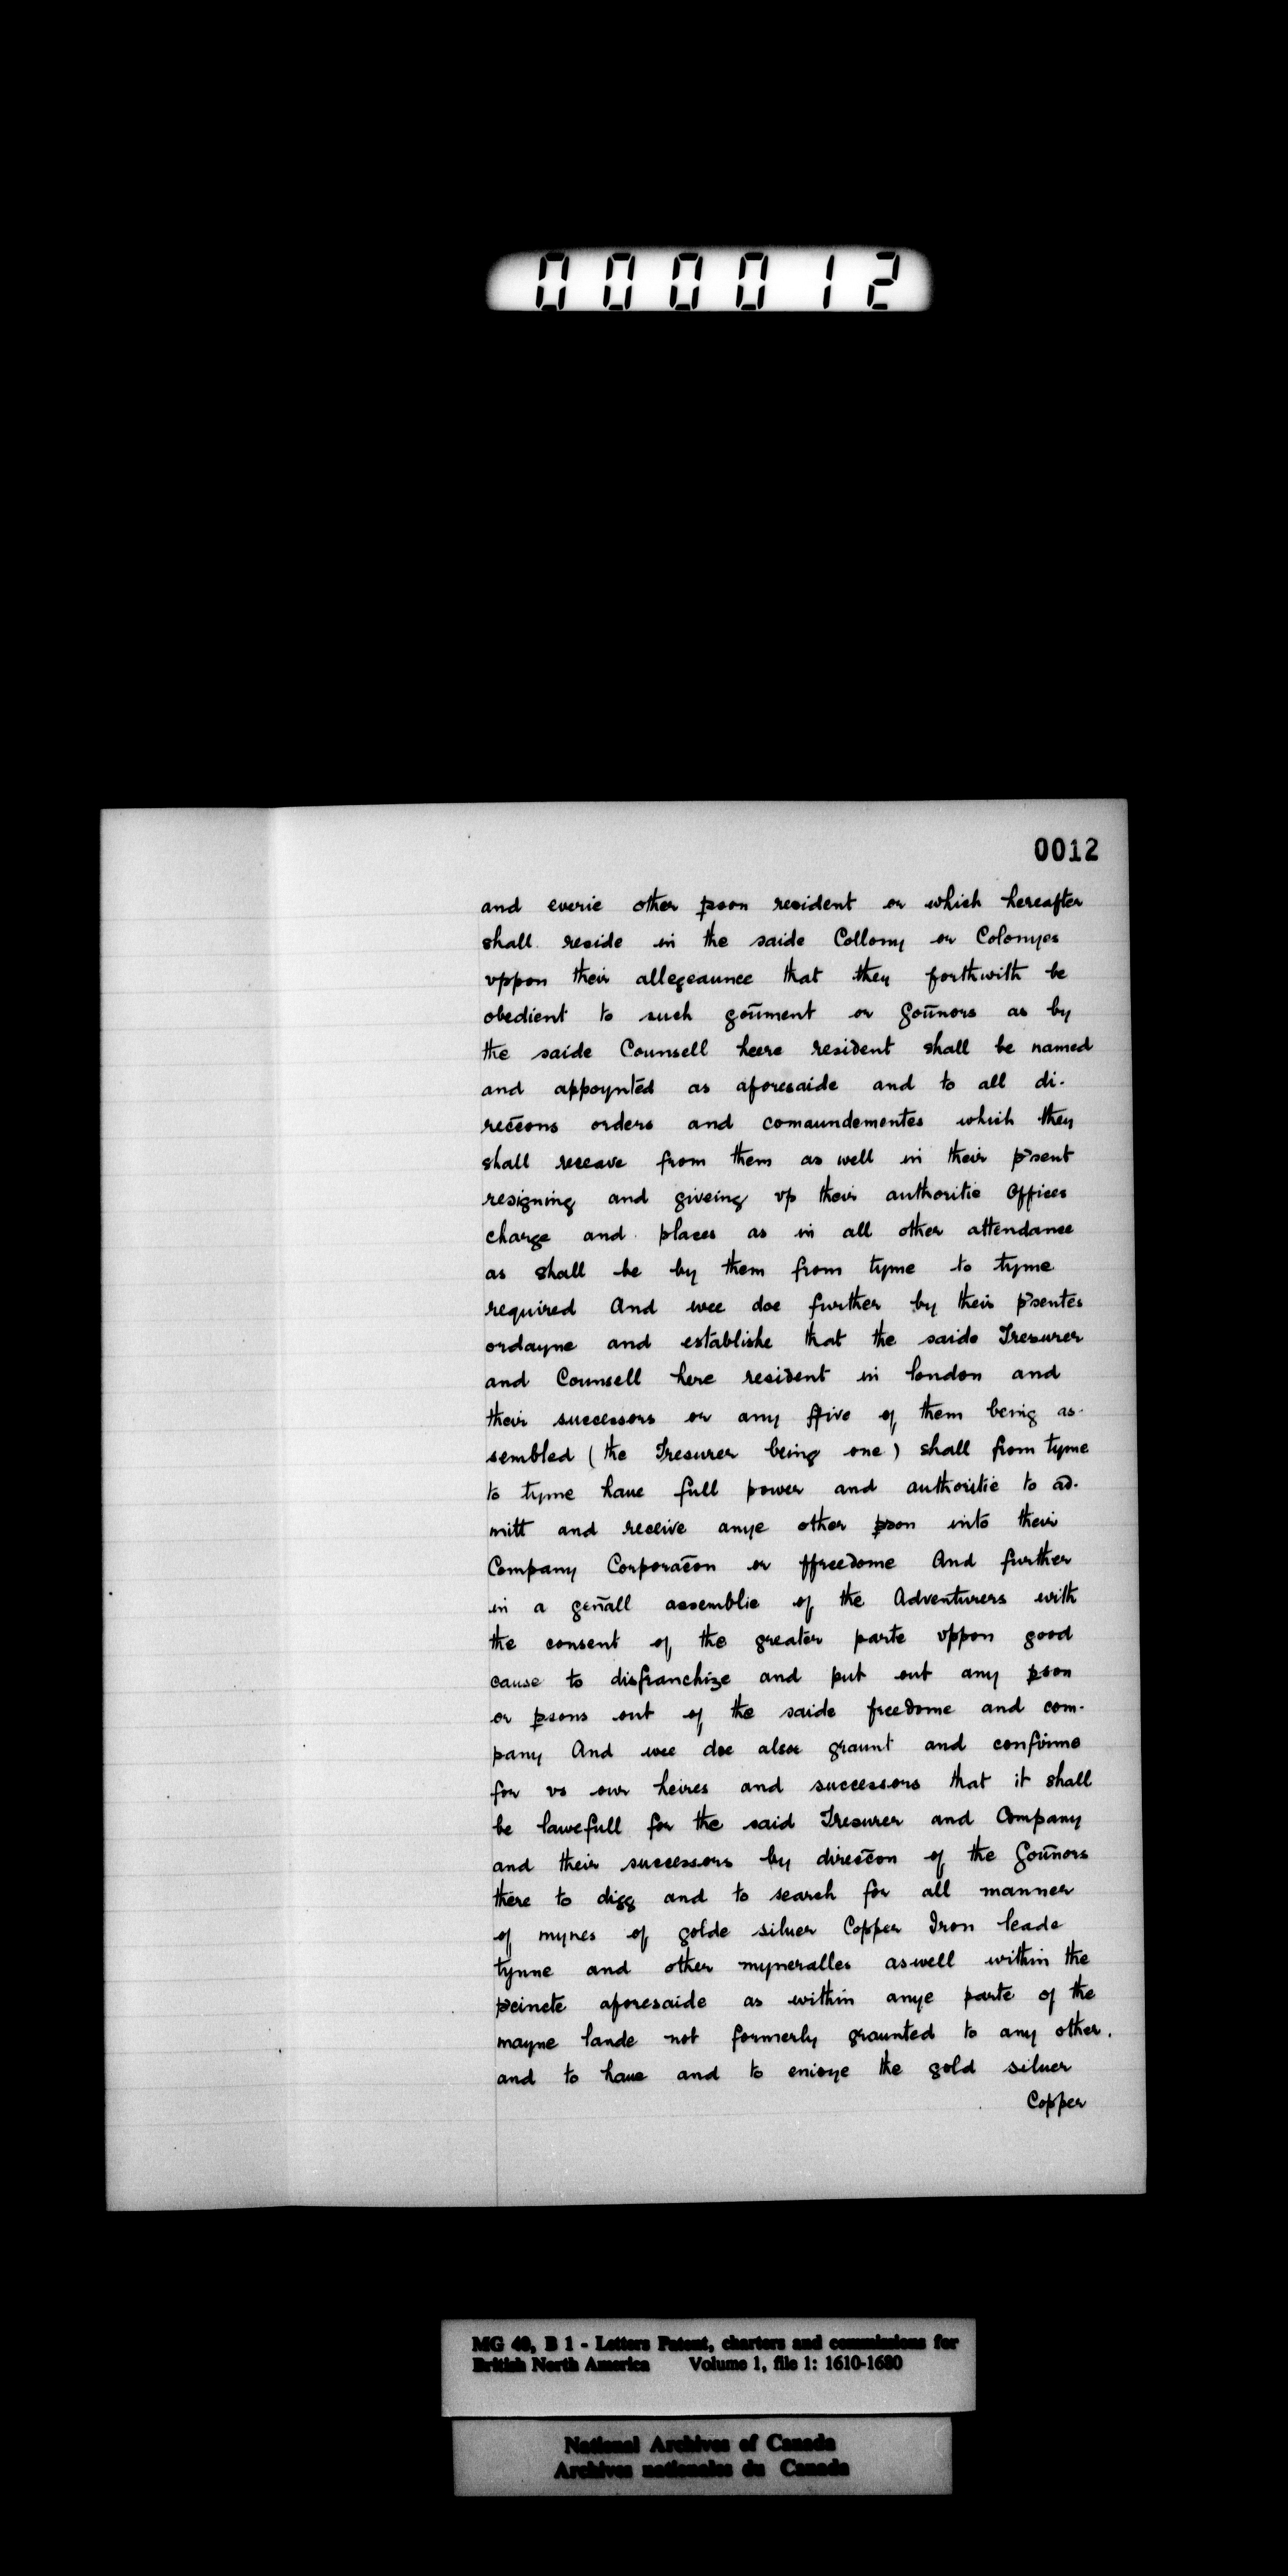 000012
0012
and everie other pson resident or which hereafter
shall reside in the saide Collony or Colonyes
vppon their allegeaunce that they forthwith be
obedient to such goũment or goũnors as by
the saide Counsell heere resident shall be named
and appoynted as aforesaide and to all di-
recc̃ons orders and comaundementes which they
shall receave from them as well in their p'sent
resigning and giveing vp their authoritie Offices
charge and places as in all other attendance
as shall be by them from tyme to tyme
required And wee doe further by their p'sentes
ordayne and establishe that the saide Tresurer
and Counsell here resident in london and
their successors or any ffive of them being as-
sembled (the Tresurer being one) shall from tyme
to tyme haue full power and authoritie to ad-
mitt and receive anye other pson into their
Company Corporac̃on or ffreedome And further
in a geñall assemblie of the Adventurers with
the consent of the greater parte vppon good
cause to disfranchize and put out any pson
or psons out of the saide freedome and com-
pany And wee doe alsoe graunt and confirme
for vs our heires and successors that it shall
be lawefull for the said Tresurer and Company
and their successors by direcc̃on of the Goũnors
there to digg and to search for all manner
of mynes of golde siluer Copper Iron leade
tynne and other myneralles aswell within the
pcincte aforesaide as within anye parte of the
mayne lande not formerly graunted to any other.
and to haue and to enioye the gold siluer
Copper
MG 40, B 1 - Letters Patent, charters and commissions for
British North America Volume 1, file 1: 1610-1680
National Archives of Canada
Archives nationales du Canada